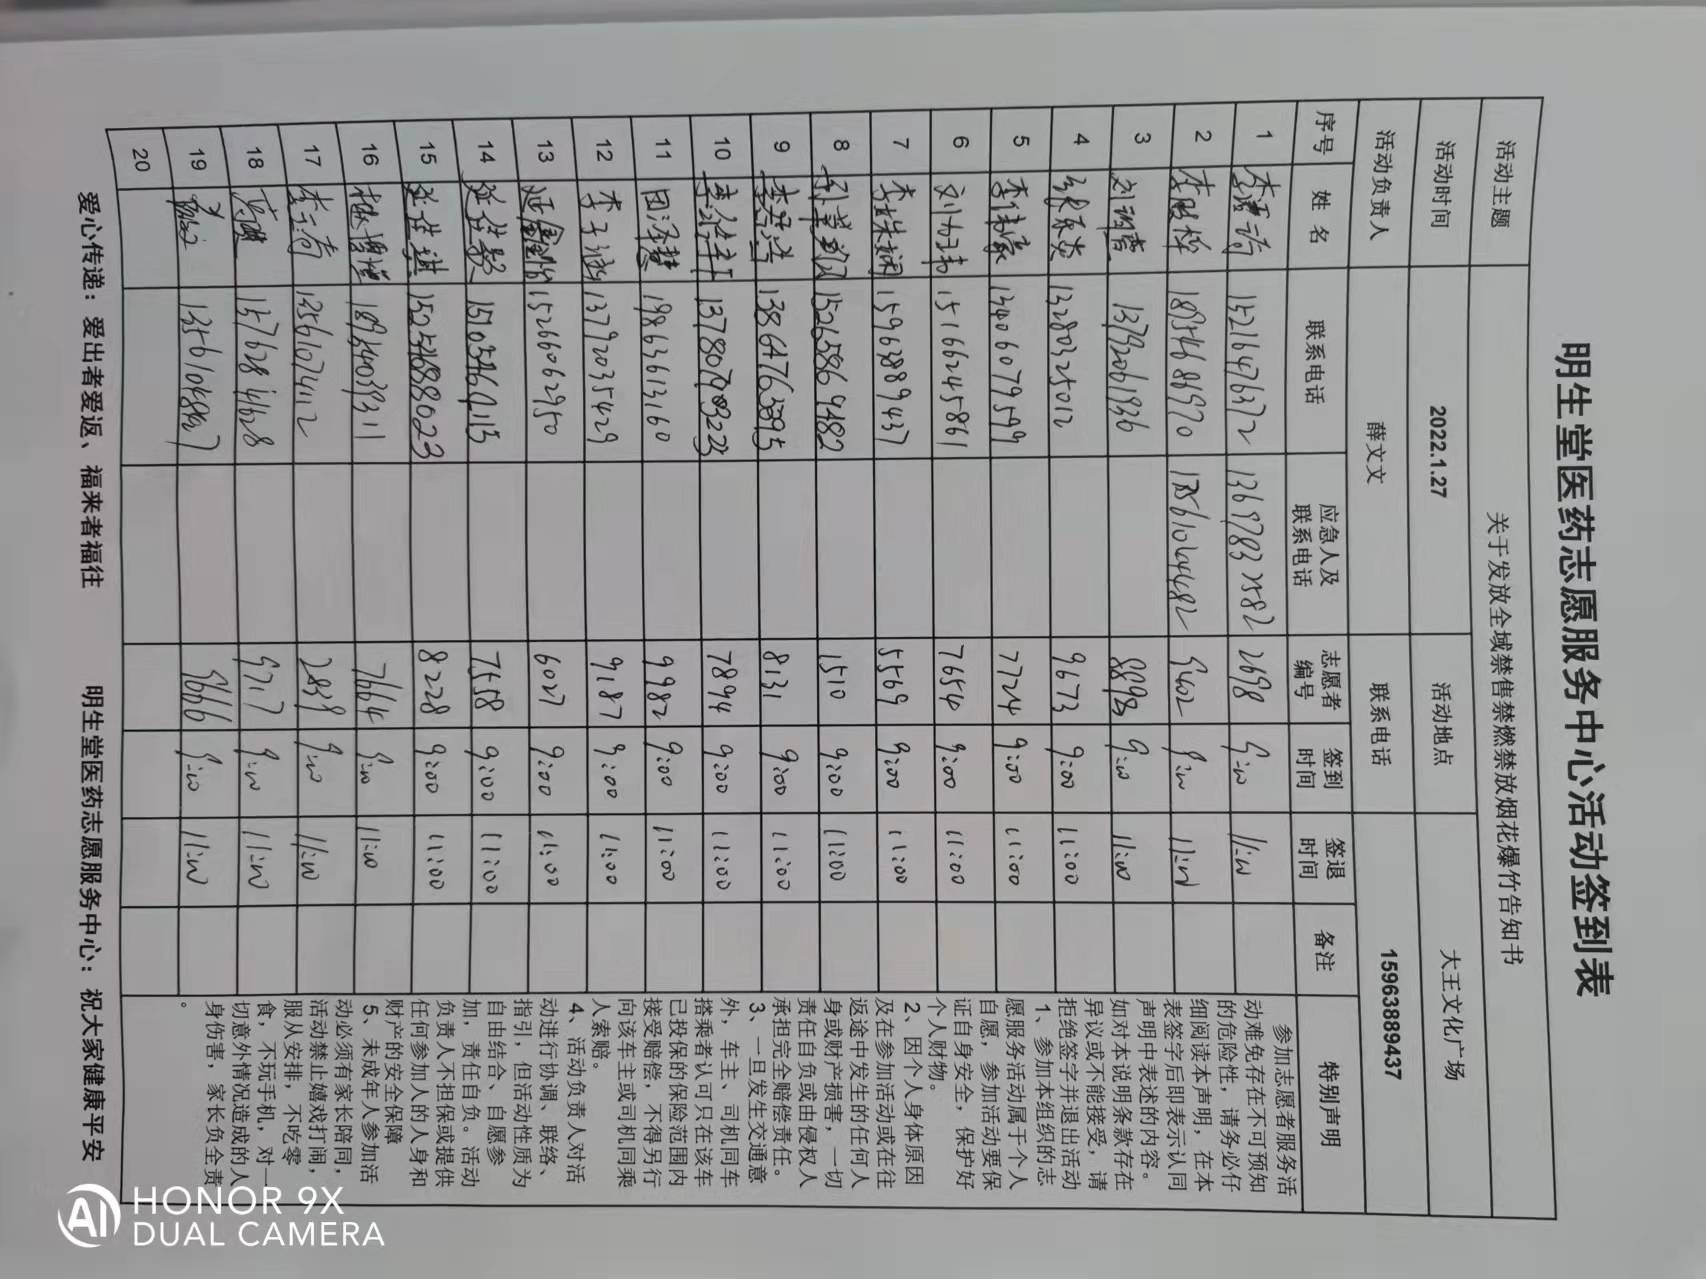 明生堂医药志愿服务中心活动签到表
活动主题 关于发放全域禁售禁燃禁放烟花爆竹告知书
活动时间 2022.1.27 活动地点 大王文化广场
活动负责人 薛文文 联系电话 15963889437
序号 姓名 联系电话 应急人及联系电话 志愿者编号 签到时间 签退时间 备注 特别声明
1 15216476372 13697837582 2698 9:00 11:00
2 18954686970 17856104482 9402 9:00 11:00
3 13792061936 8893 9:00 11:00
4 13280325012 9673 9:00 11:00
5 13406079599 7724 9:00 11:00
6 15166245861 7654 9:00 11:00
7 15963889437 5569 9:00 11:00
8 15265869482 1510 9:00 11:00
9 13864763895 8131 9:00 11:00
10 7894 9:00 11:00
11 19863613160 9982 9:00 11:00
12 李子涵 13792035429 9187 9:00 11:00
13 延鑫怡 15266062950 6027 9:00 11:00
14 7658 9:00 11:00
15 15254688023 8228 9:00 11:00
16 18954039311 7664 9:00 11:00
17 13561074112 2839 9:00 11:00
18 9717 9:00 11:00
19 9:00 11:00
20
参加志愿者服务活
动难免存在不可预知
的危险性，请务必仔
细阅读本声明，在本
表签字后即表示认同
声明中表述的内容。
如对本说明条款存在
异议或不能接受，请
拒绝签字并退出活动
1、参加本组织的志
愿服务活动属于个人
自愿，参加活动要保
证自身安全，保护好
个人财物。
2、因个人身体原因
及在参加活动或在往
返途中发生的任何人
身或财产损害，一切
责任自负或由侵权人
承担完全赔偿责任。
3、一旦发生交通意
外，车主、司机同车
搭乘者认可只在该车
已投保的保险范围内
接受赔偿，不得另行
向该车主或司机同乘
人索赔。
4、活动负责人对活
动进行协调、联络、
指引，但活动性质为
自由结合、自愿参
加，责任自负。活动
负责人不担保或提供
任何参加人的人身和
财产的安全保障
5、未成年人参加活
动必须有家长陪同，
活动禁止嬉戏打闹，
服从安排，不吃零
食，不玩手机，对一
切意外情况造成的人
身伤害，家长负全责
。
爱心传递：爱出者爱返、福来者福往 明生堂医药志愿服务中心：祝大家健康平安
HONOR 9X
DUAL CAMERA